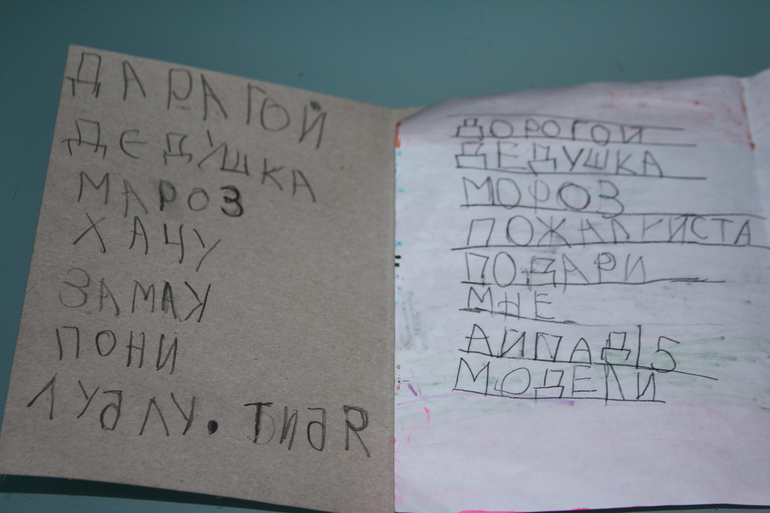 ДАРАГОЙ
ДЕДУШКА
МАРОЗ
ХАЧУ
ЗАМАК
ПОНИ
ДОРОГОЙ
ДЕДУШКА
МОРОЗ
ПОЖАЛУИСТА
ПОДАРИ
МНЕ
АЙПАД 5
МОДЕЛИ